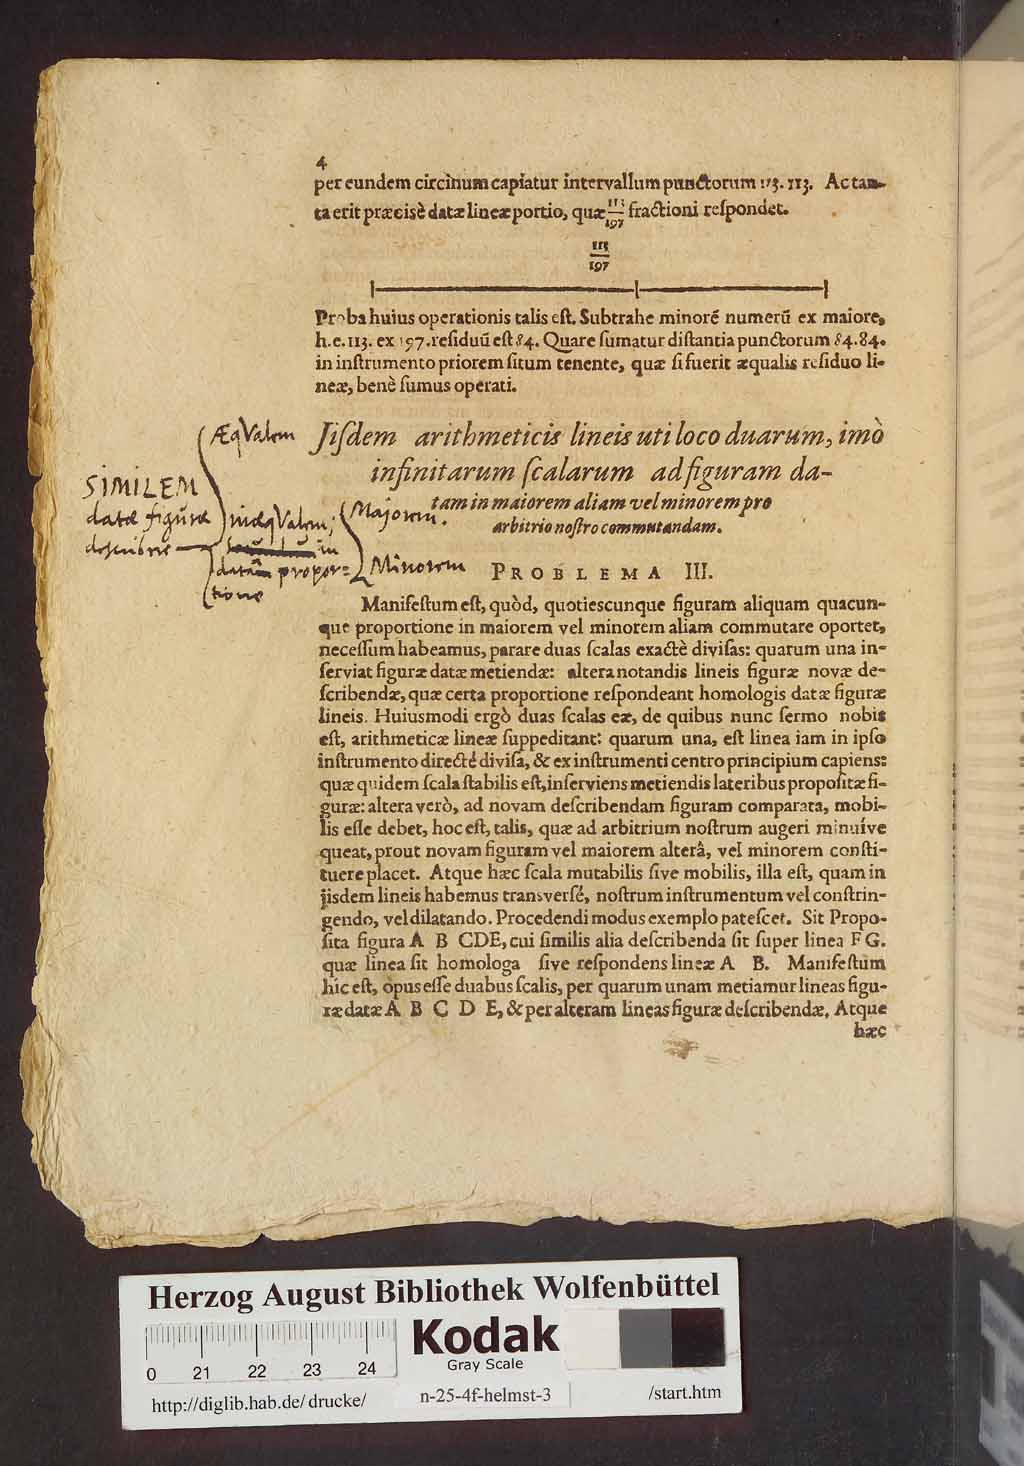 4
per eundem circinum capiatur intervallum punctorum 113. 113. Ac tan-
ta erit præcisè datæ lineæ portio, quæ 113/197 fractioni reſpondet.
113
197
Proba huius operationis talis eſt. Subtrahe minorē numerū ex maiore,
h. e. 113. ex 197. reſiduū eſt 84. Quare ſumatur diſtantia punctorum 84. 84.
in inſtrumento priorem ſitum tenente, quæ ſi fuerit æqualis reſiduo li-
neæ, benè ſumus operati.
Jiſdem arithmeticis lineis uti loco duarum, imò
infinitarum ſcalarum ad figuram da-
tam in maiorem aliam vel minorem pro
arbitrio noſtro commutandam.
SIMILEM
datæ figuræ
describere
ÆqValem
inæqValem;
in
datam propor=
tione
Majorem.
Minorem
PROBLEMA III.
Manifeſtum eſt, quòd, quotieſcunque figuram aliquam quacun-
que proportione in maiorem vel minorem aliam commutare oportet,
neceſſum habeamus, parare duas ſcalas exactè diviſas: quarum una in-
ſerviat figuræ datæ metiendæ: altera notandis lineis figuræ novæ de-
ſcribendæ, quæ certa proportione reſpondeant homologis datæ figuræ
lineis. Huiusmodi ergò duas ſcalas eæ, de quibus nunc ſermo nobis
eſt, arithmeticæ lineæ ſuppeditant: quarum una, eſt linea iam in ipſo
inſtrumento directè diviſa, & ex inſtrumenti centro principium capiens:
quæ quidem ſcala ſtabilis eſt, inſerviens metiendis lateribus propoſitæ fi-
guræ: altera verò, ad novam deſcribendam figuram comparata, mobi-
lis eſſe debet, hoc eſt, talis, quæ ad arbitrium noſtrum augeri minuíve
queat, prout novam figuram vel maiorem alterâ, vel minorem conſti-
tuere placet. Atque hæc ſcala mutabilis ſive mobilis, illa eſt, quam in
jisdem lineis habemus transverſé, noſtrum inſtrumentum vel conſtrin-
gendo, vel dilatando. Procedendi modus exemplo pateſcet. Sit Propo-
ſita figura A B CDE, cui ſimilis alia deſcribenda ſit ſuper linea FG.
quæ linea ſit homologa ſive reſpondens lineæ A B. Manifeſtum
hìc eſt, opus eſſe duabus ſcalis, per quarum unam metiamur lineas figu-
ræ datæ A B C D E, & per alteram lineas figuræ deſcribendæ, Atque
hæc
Herzog August Bibliothek Wolfenbüttel
0 21 22 23 24
Kodak
Gray Scale
http://diglib.hab.de/drucke/ n-25-4f-helmst-3 /start.htm